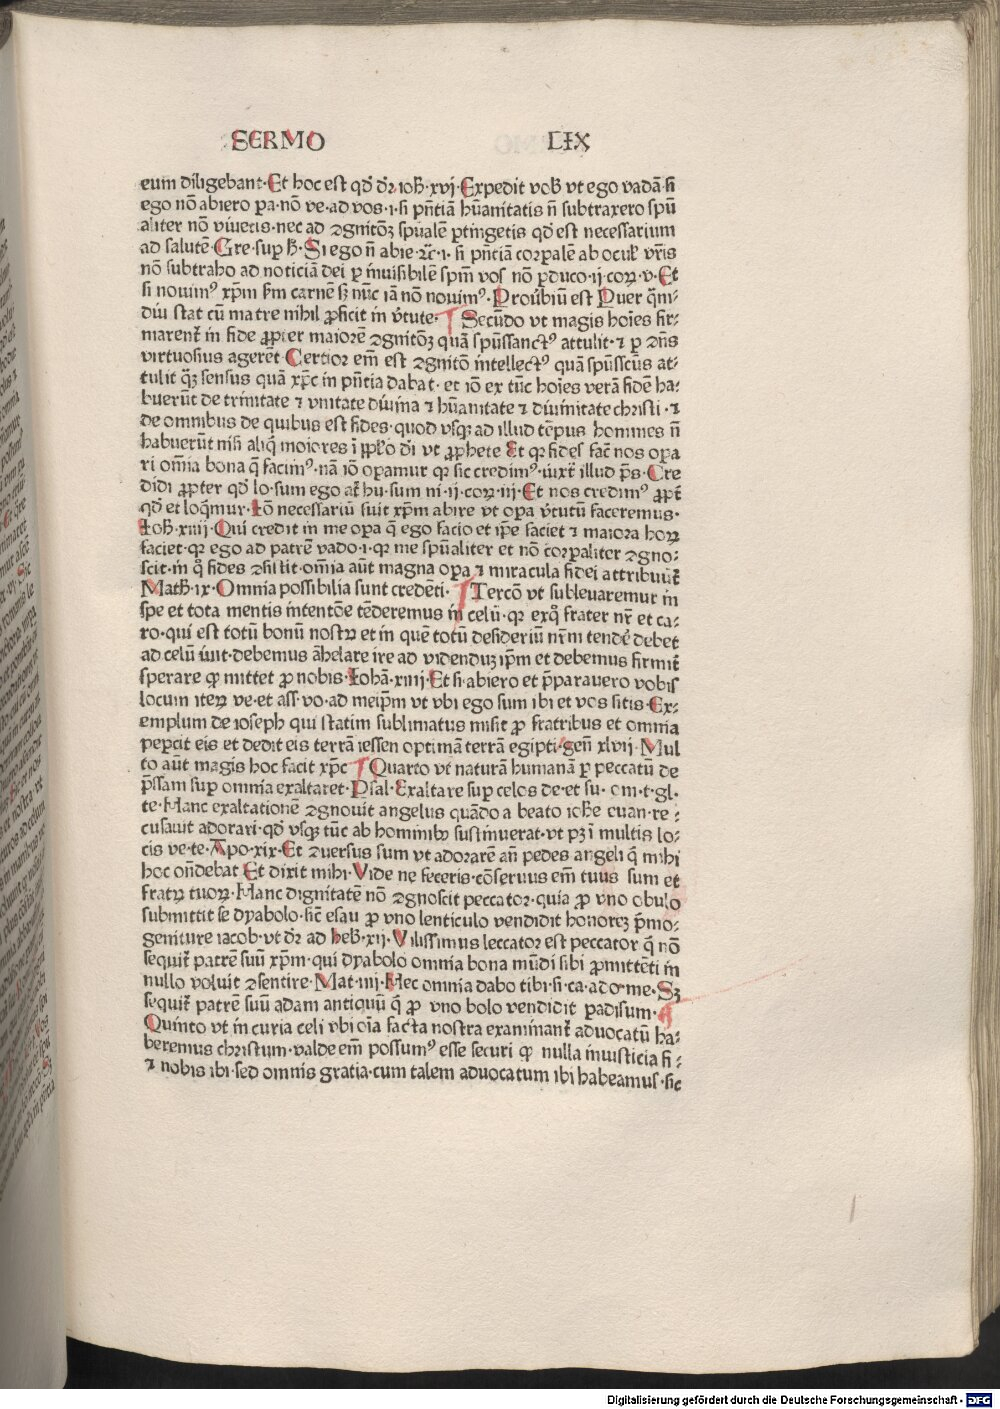 SERMO LIX
eum diligebant·Et hoc est qđ dr̄·ioh̄·xvi·Expedit vob̄ vt ego vadā·si
ego nō abiero pa·nō ve·ad vos·i·si pn̄tiā hūanitatis n̄ subtraxero spū
aliter nō viuetis·nec ad ꝯgnitōꝫ spūalē ꝑtingetis qđ est necessarium
ad salutē·Gre·suꝑ h̄·Si ego n̄ abie·ꝛc̄·i·si pn̄tiā corpalē ab ocuł vr̄is
nō subtraho ad noticiā dei ꝑ inuisibilē spm̄ vos nō ꝑduco·ii·corꝝ·v·Et
si nouimꝰ xpm̄ s̄m carnē sꝫ nūc iā nō nouimꝰ·Prou̇biū est Puer q̄m·
diu stat cū matre nihil ꝓficit in v̇tute· Secūdo vt magis hoīes fir⸗
marenť in fide ꝓpter maiorē ꝯgnitōꝫ quā spūssanctꝰ attulit·⁊ ꝑ ꝯn̄s
virtuosius agerēt·Certior em̄ est ꝯgnitō intellectꝰ quā spūsscūs at⸗
tulit q̄ꝫ sensus quā xp̄c in pn̄tia dabat·et iō ex tūc hoīes verā fidē ha⸗
buerūt de trinitate ⁊ vnitate diuina ⁊ hūanitate ⁊ diuinitate christi·⁊
de omnibus de quibus est fides·quod vsqꝫ ad illud tēpus homines n̄
habuerūt nisi aliq̄ maiores ī ppło di vt ꝓphete Et qꝛ fides fac̄ nos opa
ri omīa bona q̄ facimꝰ·nā iō opamur qꝛ sic credimꝰ·iuxť illud ps̄·Cre
didi ꝓpter qđ lo·sum ego aūt hu·sum ni·ii·corꝝ·iii·Et nos credimꝰ ꝓpť
qđ et loq̄mur·Iō necessariū fuit xpm̄ abire vt opa v̇tutū faceremus·
Ioh̄·xiiii·Qui credit in me opa q̄ ego facio et ip̄e faciet ⁊ maiora horꝝ
faciet·qꝛ ego ad patrē vado·i·qꝛ me spūaliter et nō corpaliter ꝯgno⸗
scit·in q̊ fides ꝯsistit·omīa aūt magna opa ⁊ miracula fidei attribuūť
Math̄·ix·Omnia possibilia sunt credēti· Tercō vt subleuaremur in
spe et tota mentis intentōe tēderemus in celū·qꝛ exq̊ frater nr̄ et ca⸗
ro·qui est totū bonū nostꝝ et in quē totū desideriū nr̄m tendė debet
ad celū iuit·debemus āhelare ire ad videnduꝫ ip̄m et debemus firmiť
sperare qꝫ mittet ꝓ nobis·Iohā·xiiii·Et si·abiero et p̄parauero vobis
locum iterꝝ ve·et ass·vo·ad meip̄m vt vbi ego sum ibi et vos sitis·Ex⸗
emplum de ioseph qui statim sublimatus misit ꝓ fratribus et omnia
pepcit eis et dedit eis terrā iessen optimā terrā egipti·gen̄ xlvii·Mul
to aūt magis hoc facit xp̄c Quarto vt naturā humanā ꝑ peccatū de
p̄ssam suꝑ omnia exaltaret·Psal·Exaltare suꝑ celos de·et su·om·t·gl·
te·Hanc exaltationē ꝯgnouit angelus quādo a beato iohe euan·re⸗
cusauit adorari·qđ vsqꝫ tūc ab hominibꝰ sustinuerat·vt pꝫ ī multis lo⸗
cis ve·te·Apo·xix·Et ꝯuersus sum vt adorarē an̄ pedes angeli q̄ mihi
hoc on̄debat Et dixit mihi·Vide ne feceris·cōseruus em̄ tuus sum et
fratrꝝ tuorꝝ·Hanc dignitatē nō ꝯgnoscit peccator·quia ꝓ vno obulo
submittit se dyabolo·sic̄ esau ꝓ vno lenticulo vendidit honoreꝫ p̄mo⸗
geniture iacob·vt dr̄ ad heb̄·xii·Vilissimus leccator est peccator q̄ nō
sequiť patrē suū xpm̄·qui dyabolo omnia bona mūdi sibi ꝓmittēti in
nullo voluit ꝯsentire·Mat·iiii·Hec omnia dabo tibi·si·ca·ado·me·Sꝫ
sequiť patrē suū adam antiquū q̄ ꝓ vno bolo vendidit padisum·
Quinto vt in curia celi vbi oīa facta nostra examinanť aduocatū ha⸗
beremus christum·valde em̄ possumꝰ esse securi qꝫ nulla iniusticia fi⸗
⁊ nobis ibi·sed omnis gratia·cum talem aduocatum ibi habeamus·sic
Digitalisierung gefördert durch die Deutsche Forschungsgemeinschaft - DFG